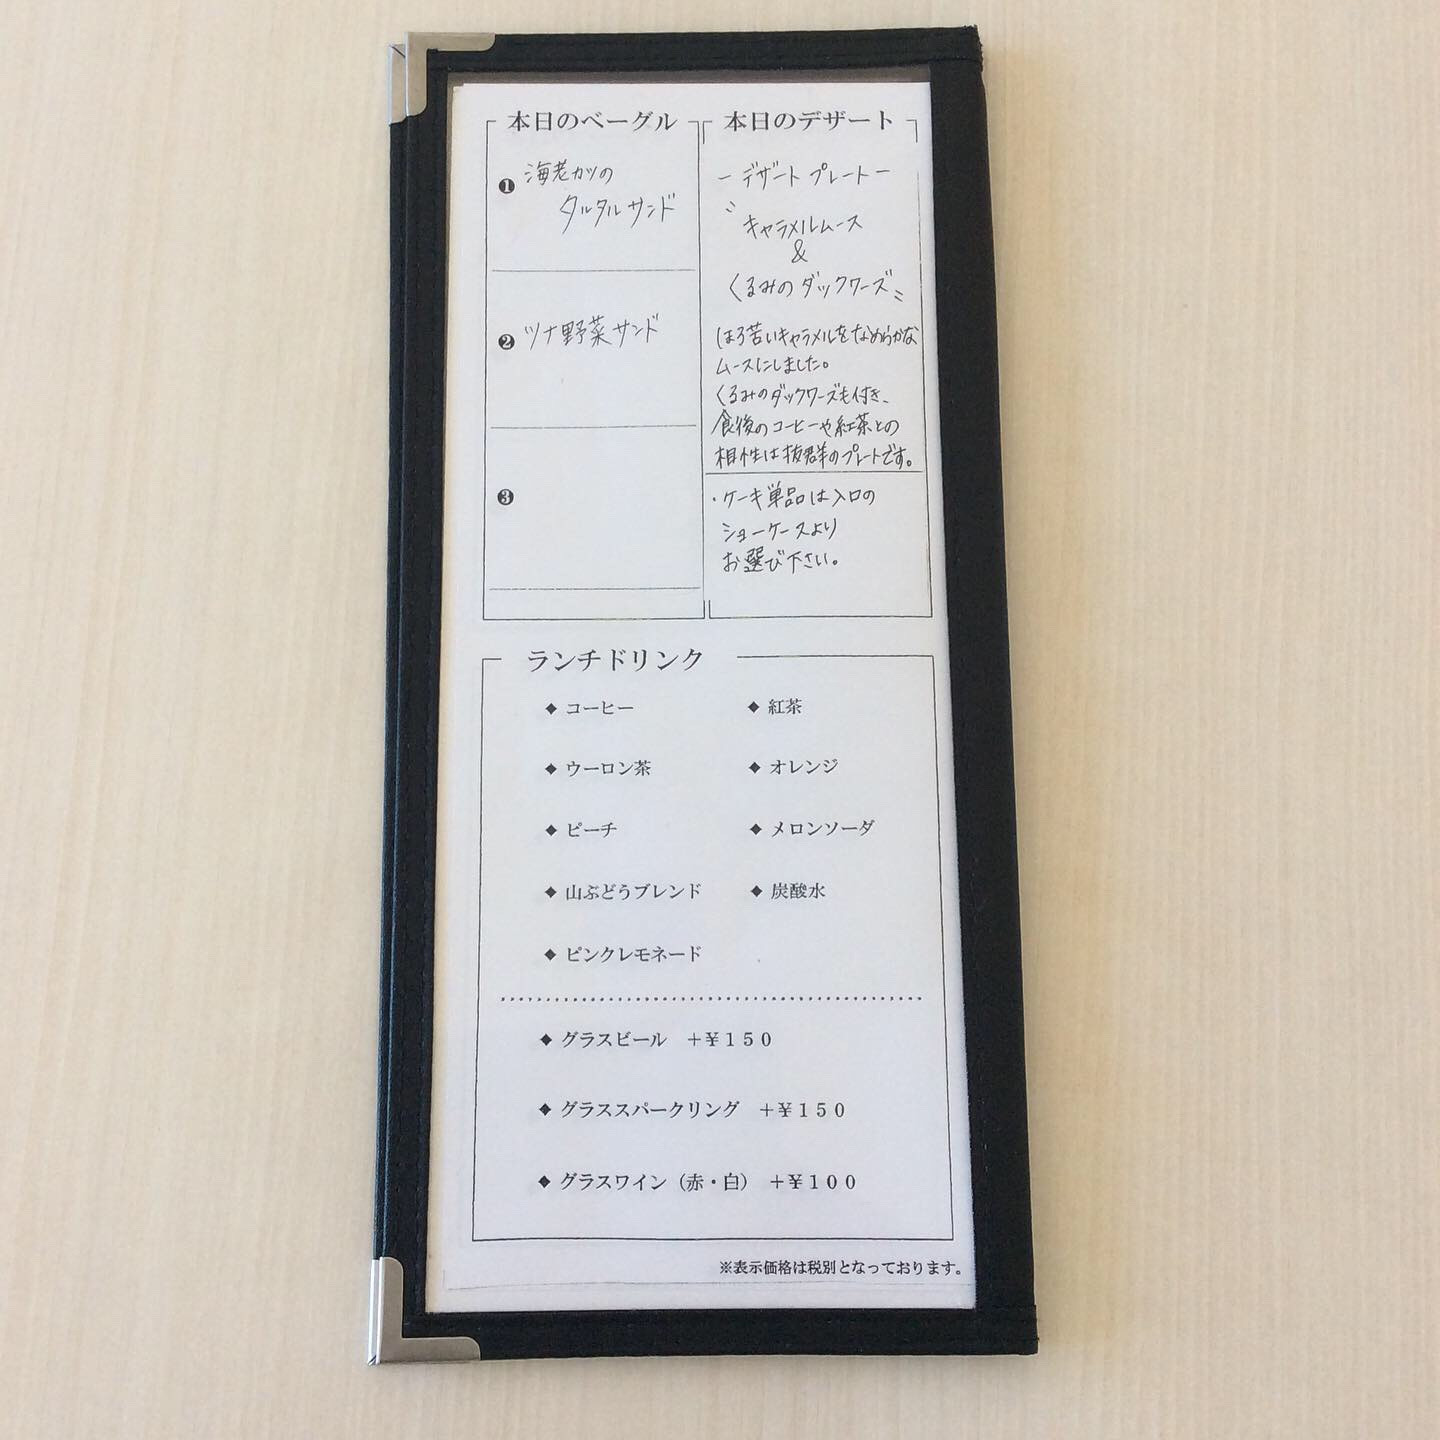 本日のベーグル
❶ 海老カツの
タルタルサンド
❷ ツナ野菜サンド
❸
本日のデザート
ー デザート プレート ー
〃 キャラメルムース
&
くるみのダックワーズ〃
ほろ苦いキャラメルをなめらかな
ムースにしました。
くるみのダックワーズも付き、
食後のコーヒーや紅茶との
相性は抜群のプレートです。
・ケーキ単品は入口の
ショーケースより
お選び下さい。
ランチドリンク
◆ コーヒー ◆ 紅茶
◆ ウーロン茶 ◆ オレンジ
◆ ピーチ ◆ メロンソーダ
◆ 山ぶどうブレンド ◆ 炭酸水
◆ ピンクレモネード
◆ グラスビール +¥150
◆ グラススパークリング +¥150
◆ グラスワイン（赤・白） +¥100
※表示価格は税別となっております。